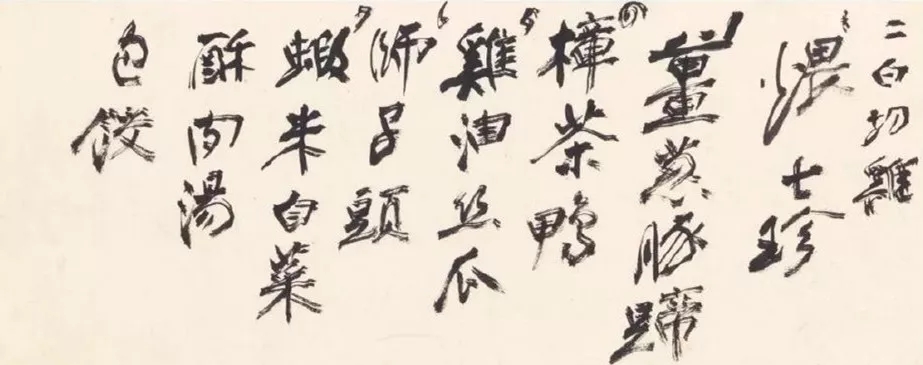 二白切雞
煨七珍
薑葱豚蹄
樟茶鴨
雞油丝瓜
師子頭
蝦米白菜
酥肉湯
包餃